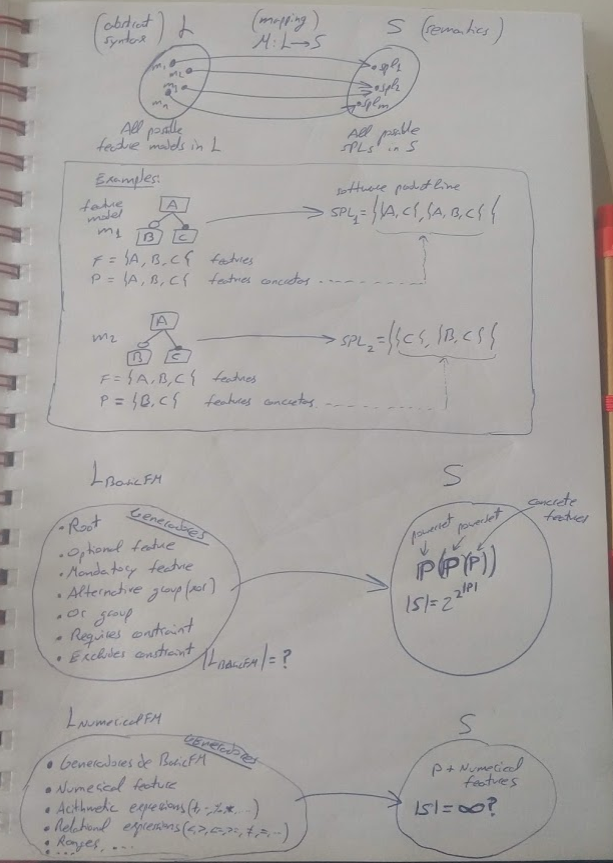 (abstract syntax) L (mapping) S (semantics)
M: L → S
m1 m2 m3 mn
spl1
spl2
splm
All possible
feature models in L
All posible
SPLs in S
Examples:
feature
model
m1
A
B C
software product line
SPL1 = {{A, C}, {A, B, C}}
F = {A, B, C} features
P = {A, B, C} features concretas
m2
A
B C
SPL2 = {{C}, {B, C}}
F = {A, B, C} features
P = {B, C} features concretas
LBasicFM
S
Generadores
• Root
• Optional feature
• Mandatory feature
• Alternative group (xor)
• Or group
• Requires constraint
• Excludes constraint
|LBasicFM| = ?
powerset powerset
concrete
features
ℙ(ℙ(P))
|S| = 2^2^|P|
LNumericalFM
S
Generadores
• Generadores de BasicFM
• Numerical feature
• Arithmetic expresions (+, -, %, *, ...)
• Relational expresions (<, >, <=, >=, ≠, =, ...)
• Ranges, ...
• ......
P + Numerical
features
|S| = ∞?